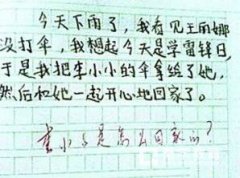 今天下雨了，我看见王雨娜
没打伞，我想起今天是学雷锋日，
于是我把李小小的伞拿给了她，
然后和她一起开心地回家了。
李小小是怎么回家的？